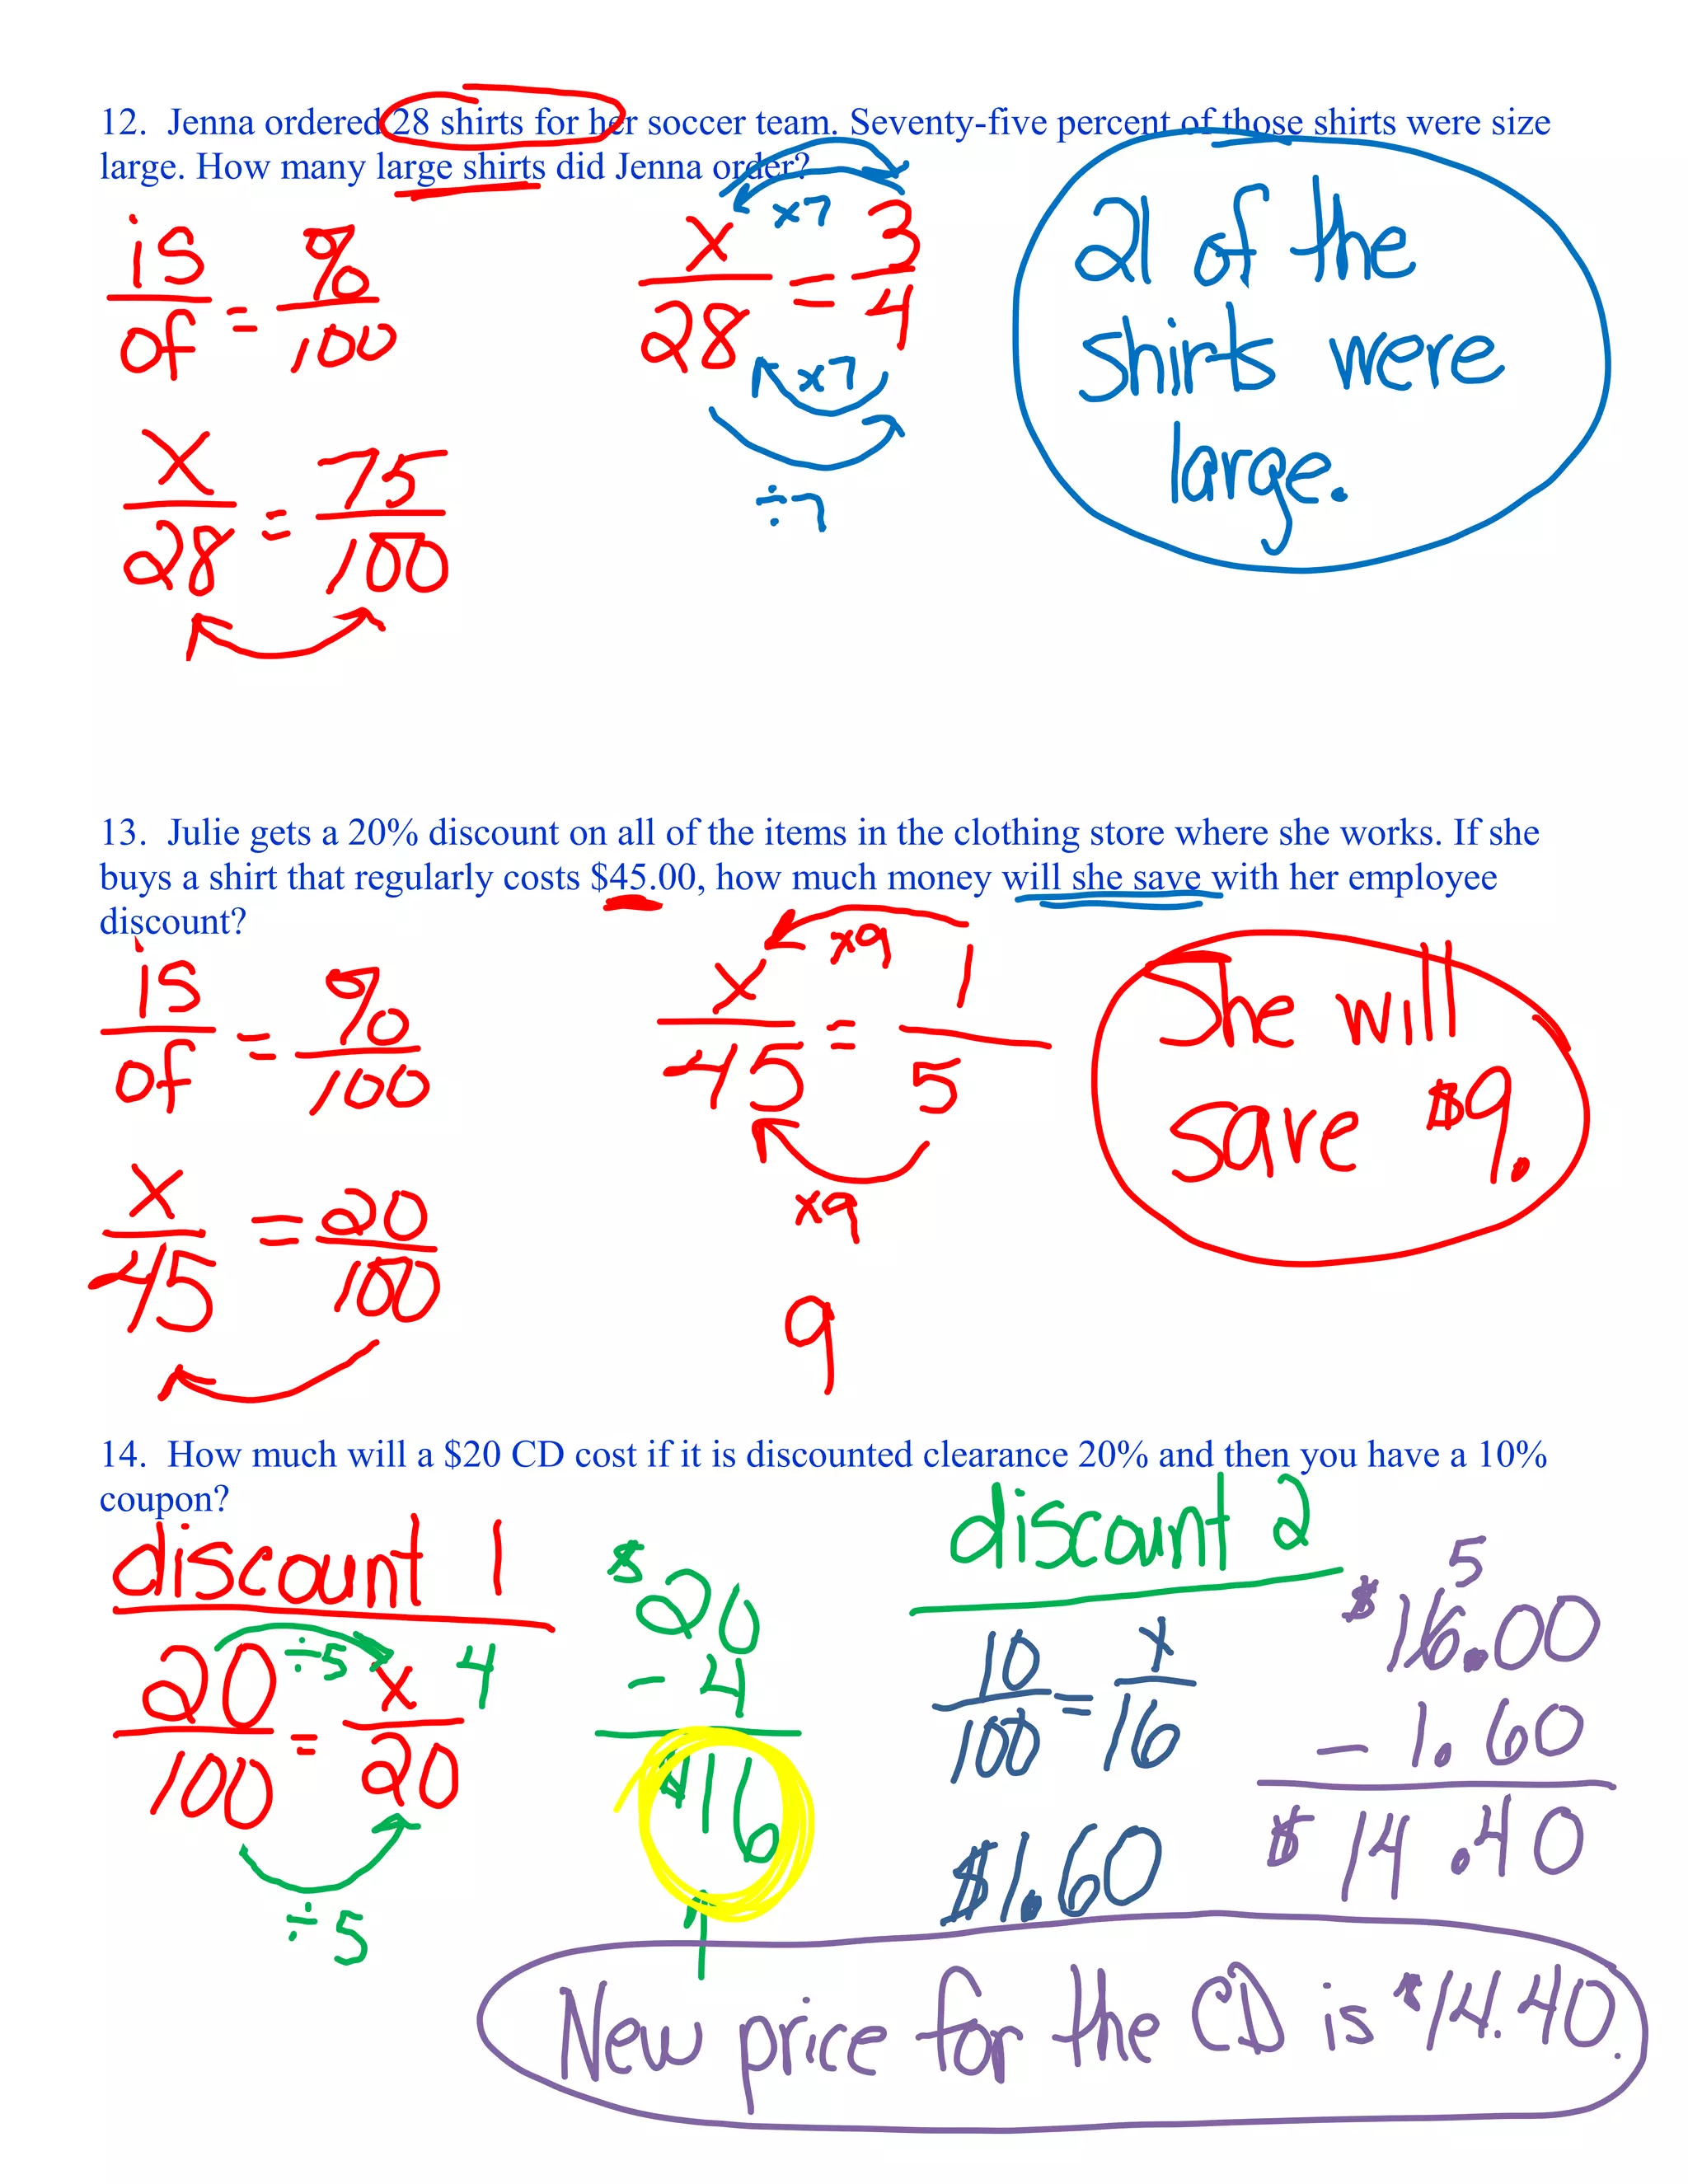 12. Jenna ordered 28 shirts for her soccer team. Seventy-five percent of those shirts were size
large. How many large shirts did Jenna order?
is/of = %/100
x/28 = 75/100
x/28 = 3/4
x7
x7
÷7
21 of the
shirts were
large.
13. Julie gets a 20% discount on all of the items in the clothing store where she works. If she
buys a shirt that regularly costs $45.00, how much money will she save with her employee
discount?
is/of = %/100
x/45 = 20/100
x/45 = 1/5
x9
x9
9
She will
save $9.
14. How much will a $20 CD cost if it is discounted clearance 20% and then you have a 10%
coupon?
discount 1
20/100 = x/20
÷5
4
÷5
$20
- 4
$16
discount 2
10/100 = x/16
$1.60
5
$16.00
- 1.60
$14.40
New price for the CD is $14.40.